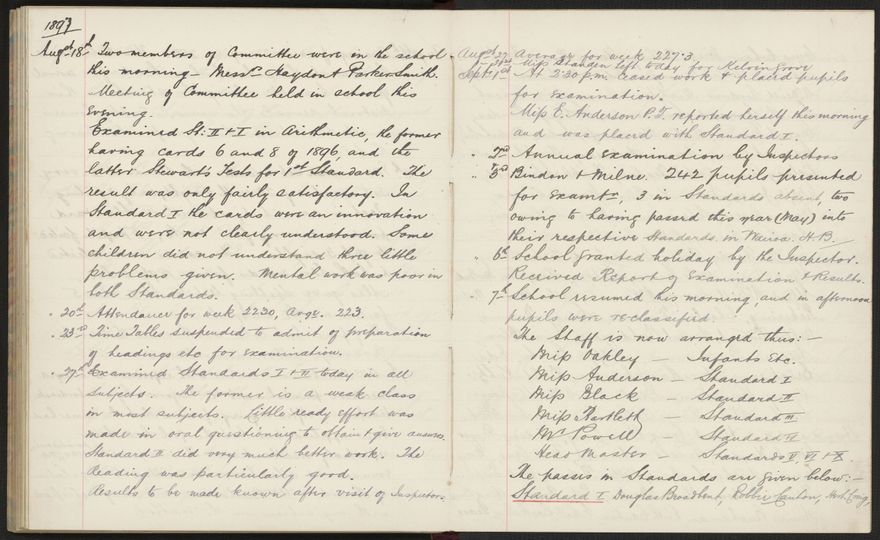 1897
Augst 18th Two members of Committee were in the school
this morning – Messrs Haydon & Parker-Smith.
Meeting of Committee held in school this
Evening.
Examined St: II & I in Arithmetic, the former
having cards 6 and 8 of 1896, and the
latter Stewart's Tests for 1st Standard. The
result was only fairly satisfactory. In
Standard I the cards were an innovation
and were not clearly understood. Some
children did not understand three little
problems given. Mental work was poor in
both Standards.
" 20th Attendance for week 2230, Avge. 223.
" 23rd Time Tables suspended to admit of preparation
of headings etc for examination.
" 27th Examined Standards I & II today in all
subjects. The former is a weak class
in most subjects. Little ready effort was
made in oral questioning to obtain & give answers.
Standard II did very much better work. The
reading was particularly good.
Results to be made known after visit of Inspector.
Augst 27 Average for week 227.3
Miss Standen left today for Kelvin Grove
Sept: 1st At 2.30 p.m. ceased work & placed pupils
for examination.
Miss E. Anderson P.T. reported herself this morning
and was placed with Standard I.
" 2nd Annual Examination by Inspectors
" 3rd Bindon & Milne. 242 pupils presented
for examtn, 3 in Standards absent, two
owing to having passed this year (May) into
their respective Standards in Wairoa. H.B.
" 6th School granted holiday by the Inspector.
Received Report of Examination & Results.
" 7th School resumed this morning and in afternoon
pupils were reclassified.
The Staff is now arranged thus:–
Miss Oakley – Infants Etc.
Miss Anderson – Standard I
Miss Black – Standard II
Miss Bartlett – Standard III
Mr Powell – Standard IV
Head Master – Standards V VI & X.
The passes in Standards are given below:–
Standard I. Douglas Broadbent, Robbie Canton,